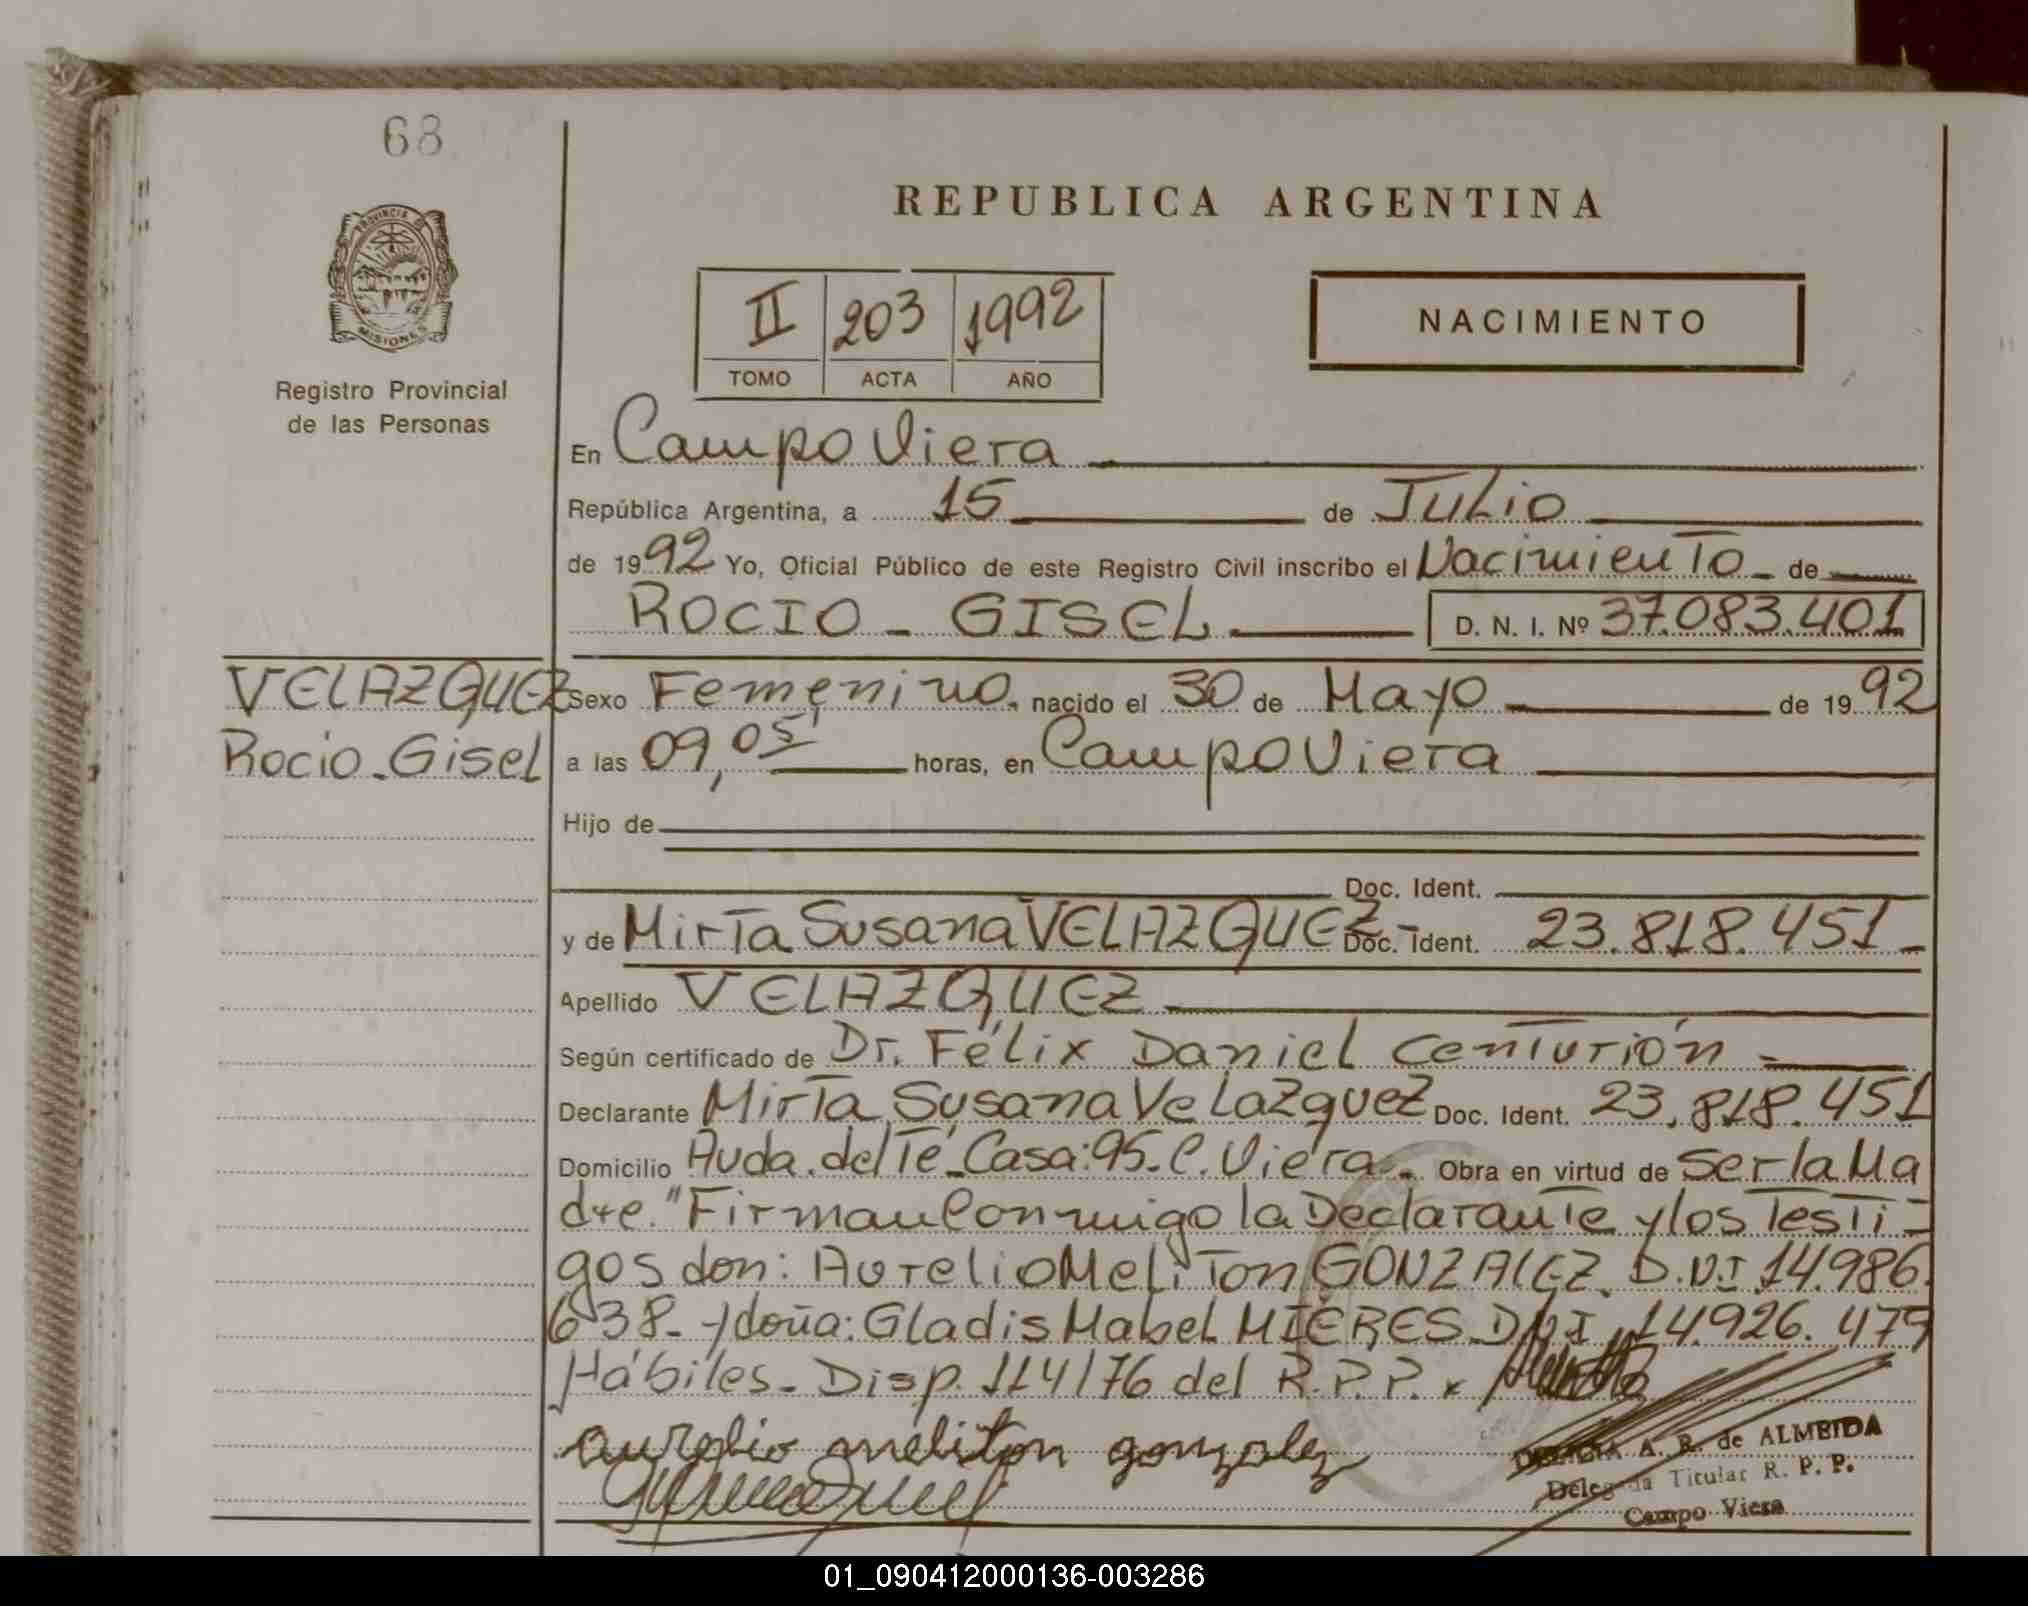 68
PROVINCIA DE
MISIONES
Registro Provincial
de las Personas
REPUBLICA ARGENTINA
II 203 1992
TOMO ACTA AÑO
NACIMIENTO
En Campo Viera
República Argentina, a 15 de Julio
de 1992 Yo, Oficial Público de este Registro Civil inscribo el Nacimiento de
ROCIO - GISEL D. N. I. Nº 37.083.401
VELAZQUEZ
Rocio - Gisel
Sexo Femenino. nacido el 30 de Mayo de 1992
a las 09,05' horas, en Campo Viera
Hijo de
Doc. Ident.
y de Mirta Susana VELAZQUEZ - Doc. Ident. 23.818.451 -
Apellido VELAZQUEZ
Según certificado de Dr. Félix Daniel Centurión -
Declarante Mirta Susana Velazquez Doc. Ident. 23.818.451
Domicilio Avda. del Té - Casa: 95 - C. Viera - Obra en virtud de Ser la Ma
dre. "Firman Conmigo la Declarante y los Testi -
gos don: Aurelio Meliton GONZALEZ. D.N.I 14.986.
638 - y doña: Gladis Mabel MIÉRES. DNI 14.926.479
Hábiles - Disp. 114/76 del R.P.P. x
aurelio meliton gonzalez
A. R. de ALMEIDA
Delegada Titular R. P. P.
Campo Viera
01_090412000136-003286